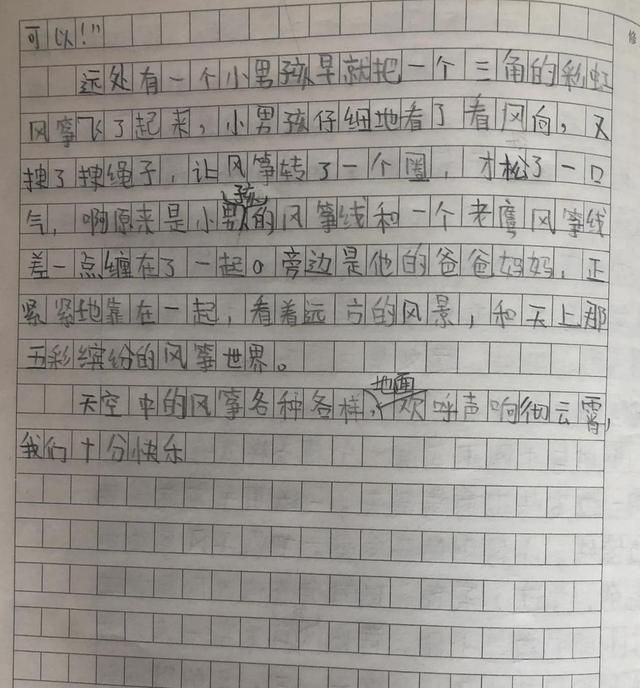 可以！"
远处有一个小男孩早就把一个三角的彩虹
风筝飞了起来，小男孩仔细地看了看风向，又
拽了拽绳子，让风筝转了一个圈，才松了一口
气，啊原来是小男孩的风筝线和一个老鹰风筝线
差一点缠在了一起。旁边是他的爸爸妈妈，正
紧紧地靠在一起，看着远方的风景，和天上那
五彩缤纷的风筝世界。
天空中的风筝各种各样，地面欢呼声响彻云霄，
我们十分快乐